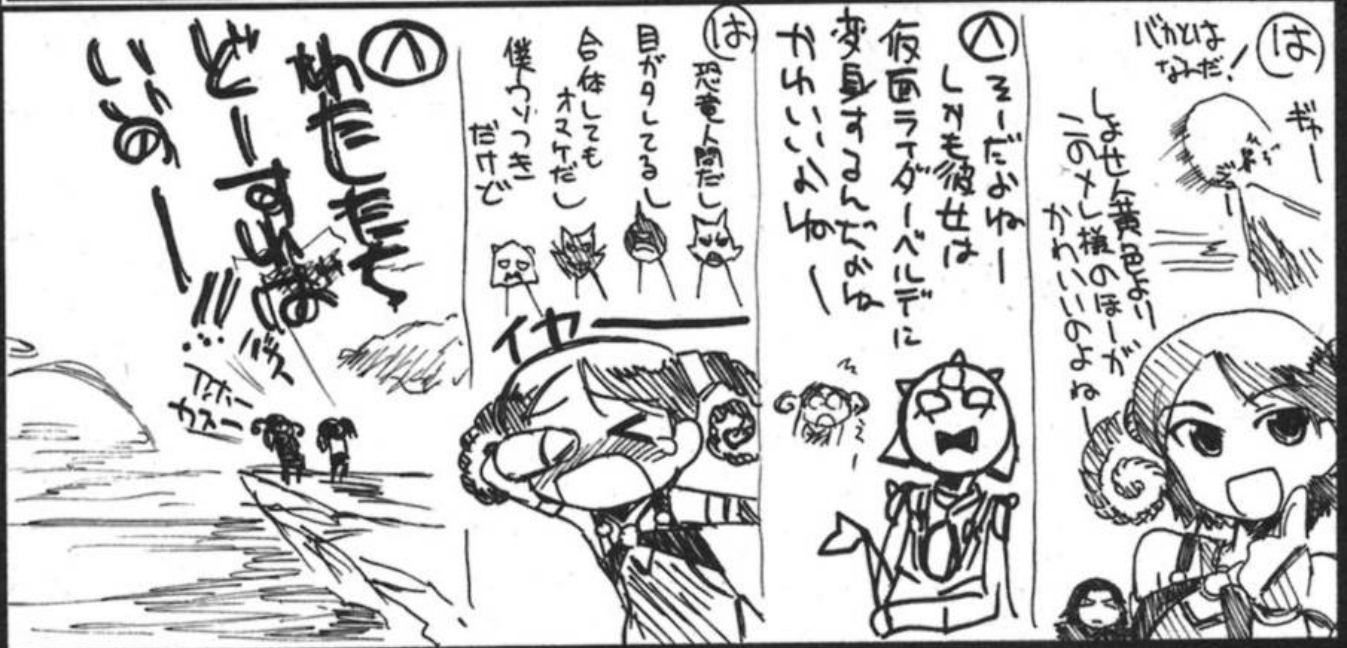 は
ギャー
バカとは
なんだ!
しょせん黄色より
このメレ様のほーが
かわいいのよねー
へ
そーだよねー
しかも彼女は
仮面ライダーベルデに
変身するんだよね
かわいいよねー
は
恐竜人間だし
目がタレてるし
合体しても
オマケだし
僕ウソつき
だけど
イヤーー
へ
わたしたち
どーすれば
いいのー
!!!
バカ
アホー
カスー